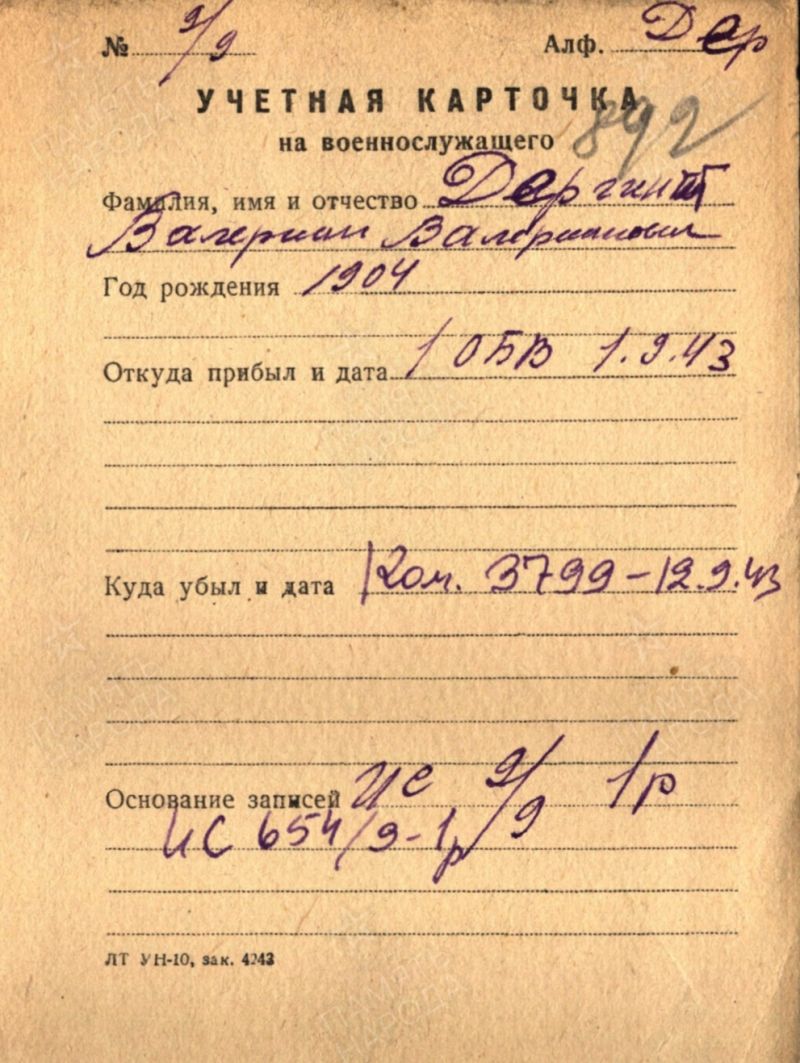 № 9/9 Алф. Дер
УЧЕТНАЯ КАРТОЧКА
на военнослужащего 892
Фамилия, имя и отчество
Валериан Валерианович
Год рождения 1904
Откуда прибыл и дата 1 ОБВ 1.9.43
Куда убыл и дата Ком. 3799 - 12.9.43
Основание записей ИС 9/9 1р
ИС 654/9-1р
ЛТ УН-10, зак. 4243